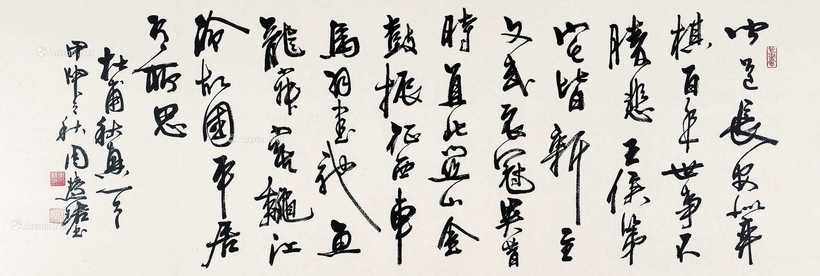 聞道長安似弈
棋百年世事不
勝悲王侯第
宅皆新主
文武衣冠異昔
時直北關山金
鼓振征西車
馬羽書馳魚
龍寂寞龝江
冷故國平居
有所思
杜甫秋興一首
甲申之秋周慧珺